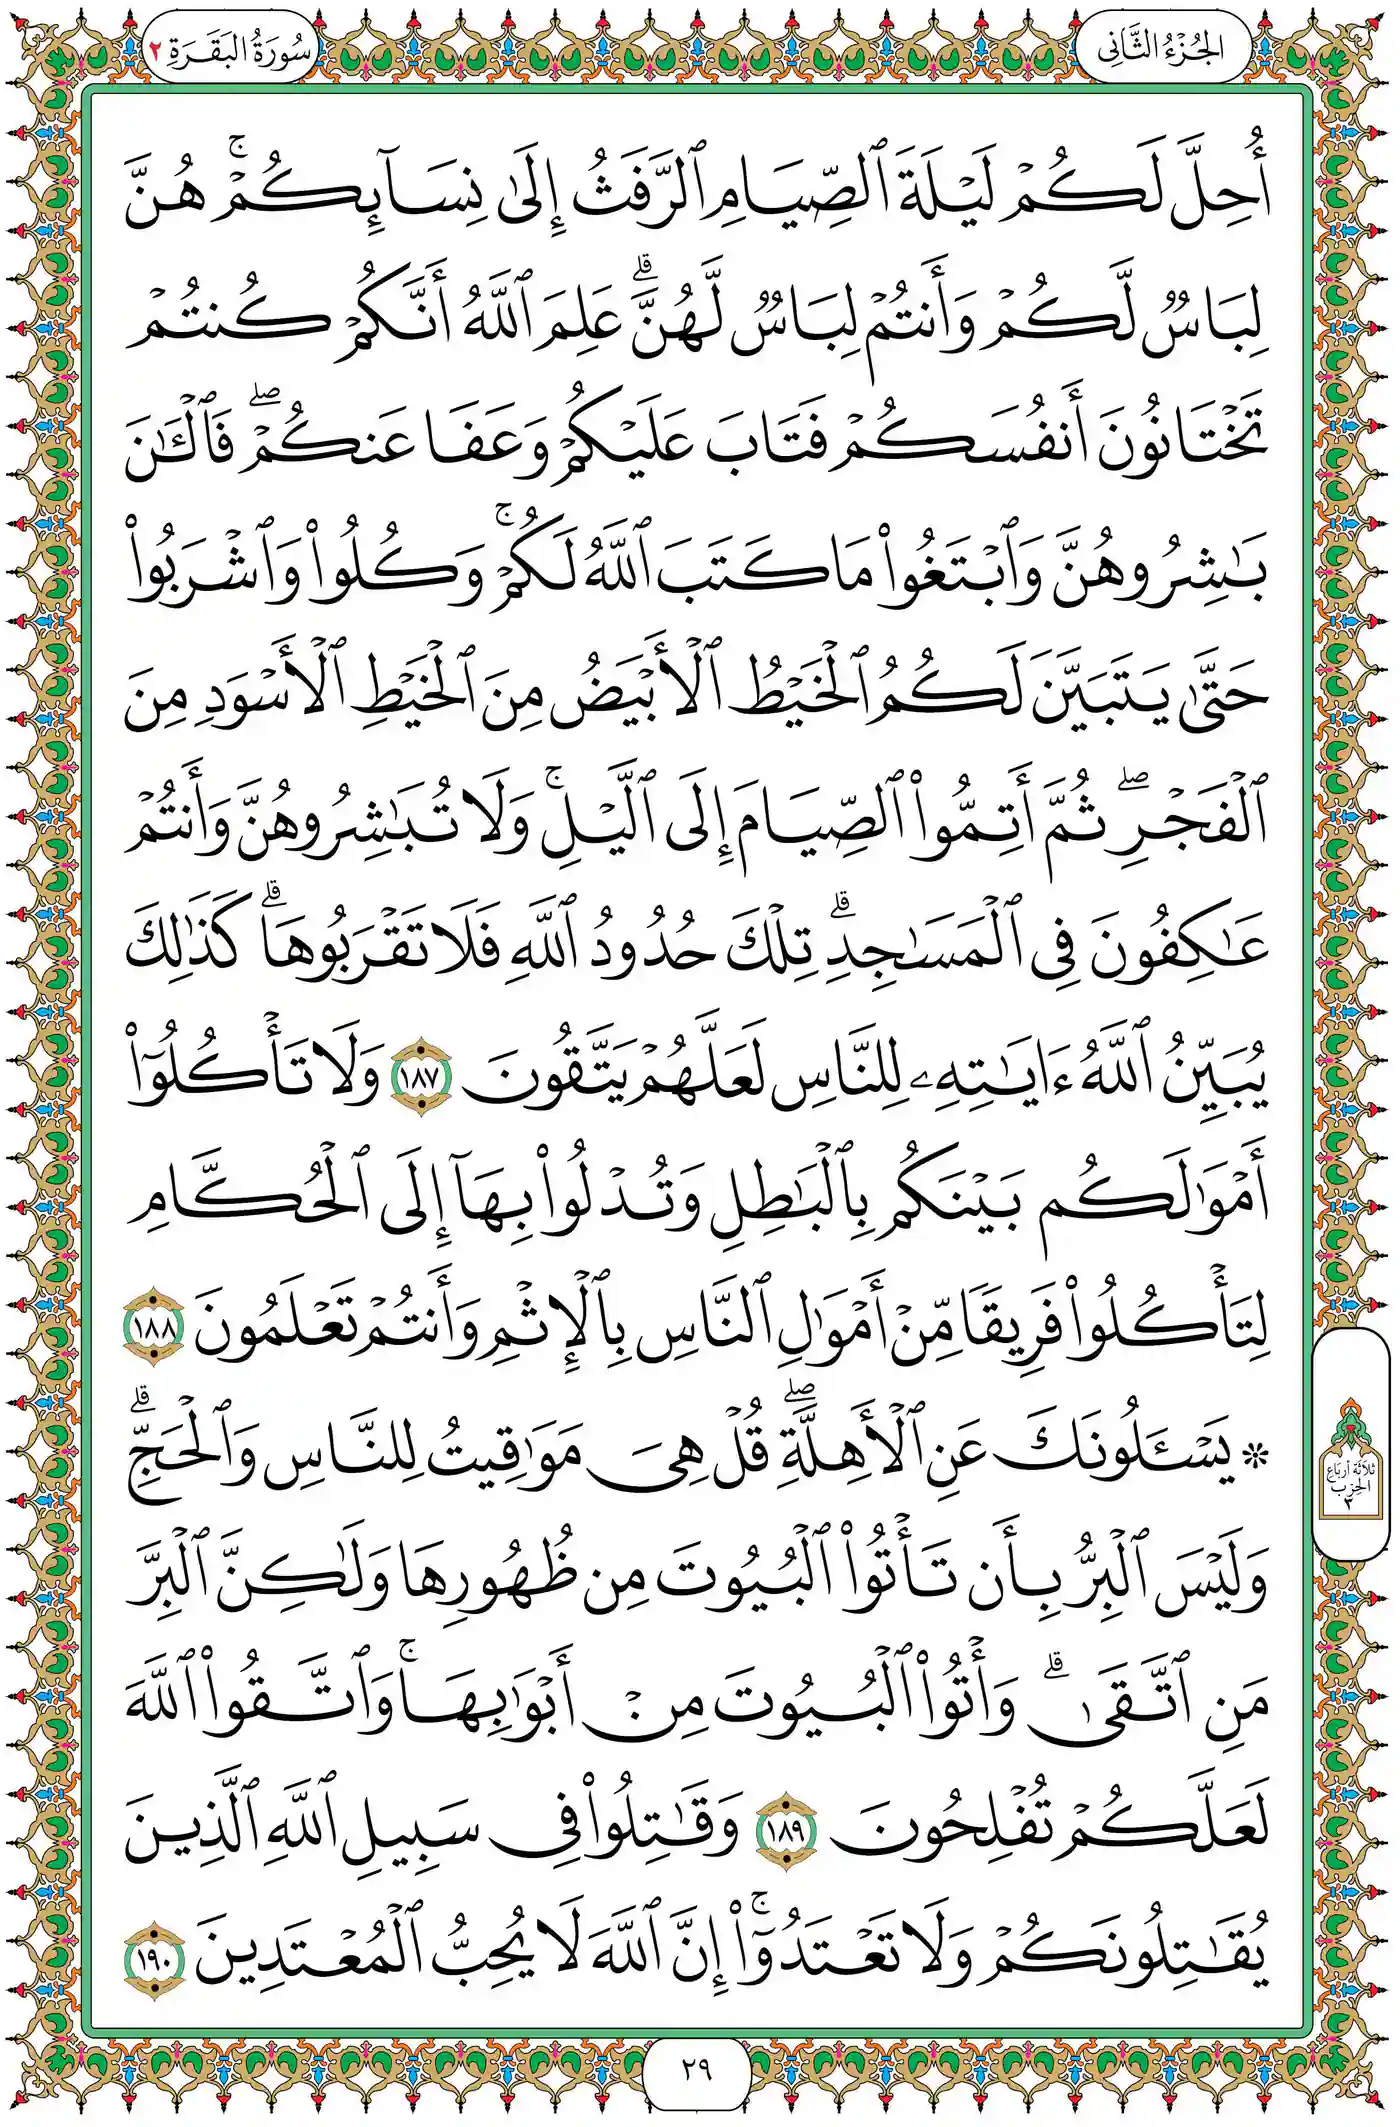 الجُزْءُ الثَّانِى
سُورَةُ البَقَرَةِ ٢
أُحِلَّ لَكُمْ لَيْلَةَ ٱلصِّيَامِ ٱلرَّفَثُ إِلَىٰ نِسَآئِكُمْ ۚ هُنَّ
لِبَاسٌ لَّكُمْ وَأَنتُمْ لِبَاسٌ لَّهُنَّ ۗ عَلِمَ ٱللَّهُ أَنَّكُمْ كُنتُمْ
تَخْتَانُونَ أَنفُسَكُمْ فَتَابَ عَلَيْكُمْ وَعَفَا عَنكُمْ ۖ فَٱلْـَٰٔنَ
بَـٰشِرُوهُنَّ وَٱبْتَغُوا۟ مَا كَتَبَ ٱللَّهُ لَكُمْ ۚ وَكُلُوا۟ وَٱشْرَبُوا۟
حَتَّىٰ يَتَبَيَّنَ لَكُمُ ٱلْخَيْطُ ٱلْأَبْيَضُ مِنَ ٱلْخَيْطِ ٱلْأَسْوَدِ مِنَ
ٱلْفَجْرِ ۖ ثُمَّ أَتِمُّوا۟ ٱلصِّيَامَ إِلَى ٱلَّيْلِ ۚ وَلَا تُبَـٰشِرُوهُنَّ وَأَنتُمْ
عَـٰكِفُونَ فِى ٱلْمَسَـٰجِدِ ۗ تِلْكَ حُدُودُ ٱللَّهِ فَلَا تَقْرَبُوهَا ۗ كَذَٰلِكَ
يُبَيِّنُ ٱللَّهُ ءَايَـٰتِهِۦ لِلنَّاسِ لَعَلَّهُمْ يَتَّقُونَ ١٨٧ وَلَا تَأْكُلُوٓا۟
أَمْوَٰلَكُم بَيْنَكُم بِٱلْبَـٰطِلِ وَتُدْلُوا۟ بِهَآ إِلَى ٱلْحُكَّامِ
لِتَأْكُلُوا۟ فَرِيقًا مِّنْ أَمْوَٰلِ ٱلنَّاسِ بِٱلْإِثْمِ وَأَنتُمْ تَعْلَمُونَ ١٨٨
۞ يَسْـَٔلُونَكَ عَنِ ٱلْأَهِلَّةِ ۖ قُلْ هِىَ مَوَٰقِيتُ لِلنَّاسِ وَٱلْحَجِّ ۗ
وَلَيْسَ ٱلْبِرُّ بِأَن تَأْتُوا۟ ٱلْبُيُوتَ مِن ظُهُورِهَا وَلَـٰكِنَّ ٱلْبِرَّ
مَنِ ٱتَّقَىٰ ۗ وَأْتُوا۟ ٱلْبُيُوتَ مِنْ أَبْوَٰبِهَا ۚ وَٱتَّقُوا۟ ٱللَّهَ
لَعَلَّكُمْ تُفْلِحُونَ ١٨٩ وَقَـٰتِلُوا۟ فِى سَبِيلِ ٱللَّهِ ٱلَّذِينَ
يُقَـٰتِلُونَكُمْ وَلَا تَعْتَدُوٓا۟ ۚ إِنَّ ٱللَّهَ لَا يُحِبُّ ٱلْمُعْتَدِينَ ١٩٠
ثَلاثَة أربَاع
الحِزب
٣
٢٩